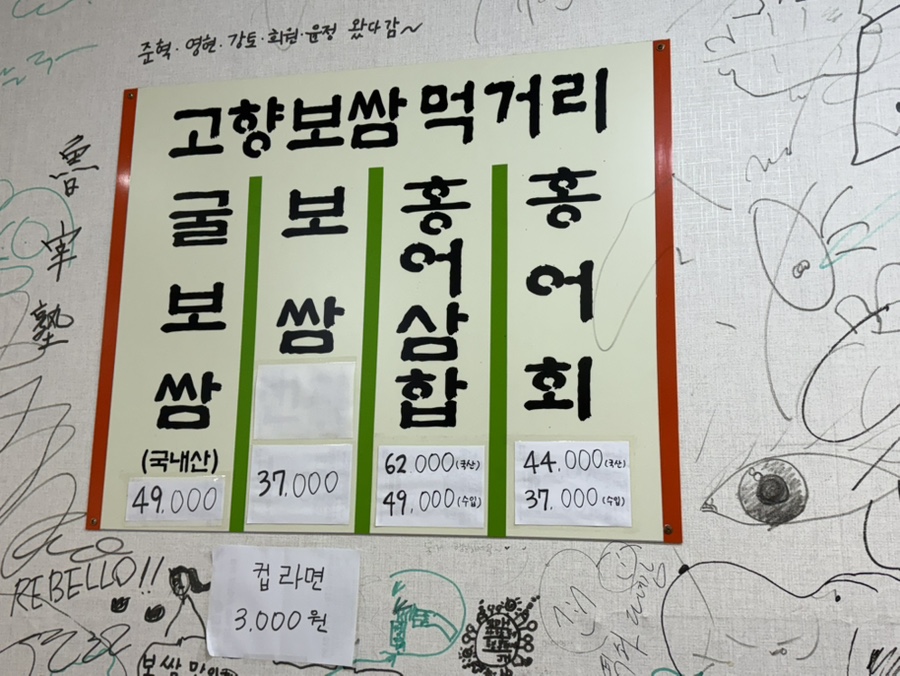 준혁·영현·강토·희원·윤정 왔다감~
고향보쌈먹거리
굴보쌈
(국내산)
49.000
보쌈
37.000
홍어삼합
62.000(국산)
49.000(수입)
홍어회
44.000(국산)
37.000(수입)
컵라면
3.000원
REBELLO!!